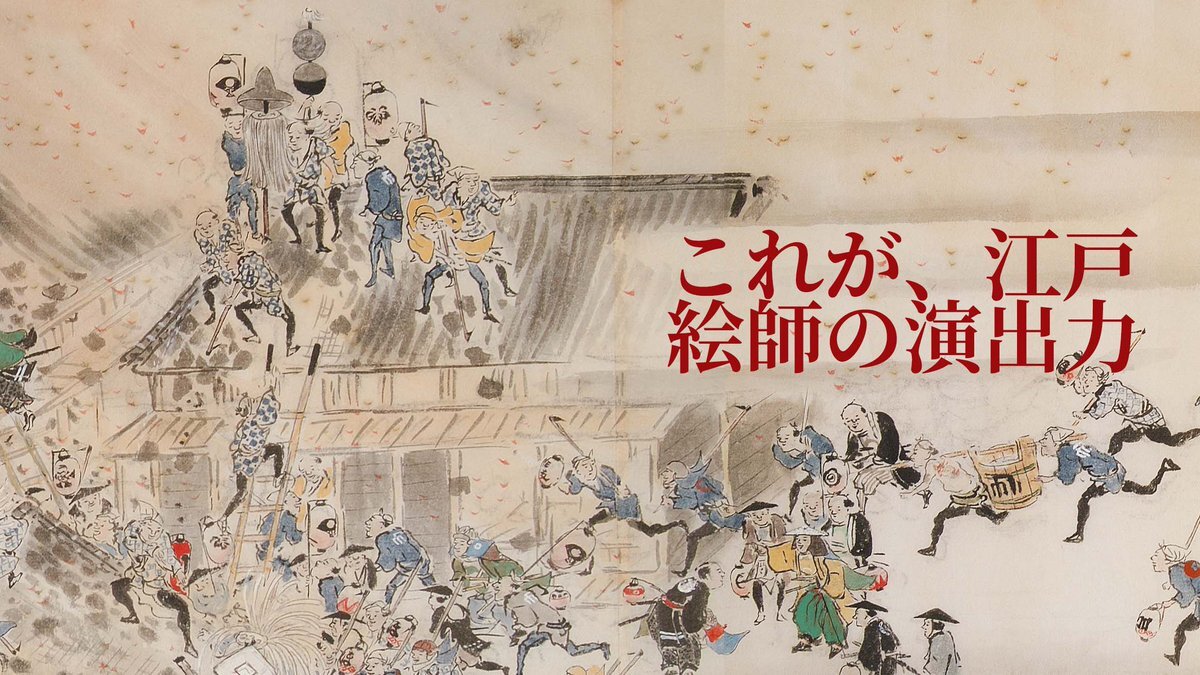 これが、江戸
絵師の演出力